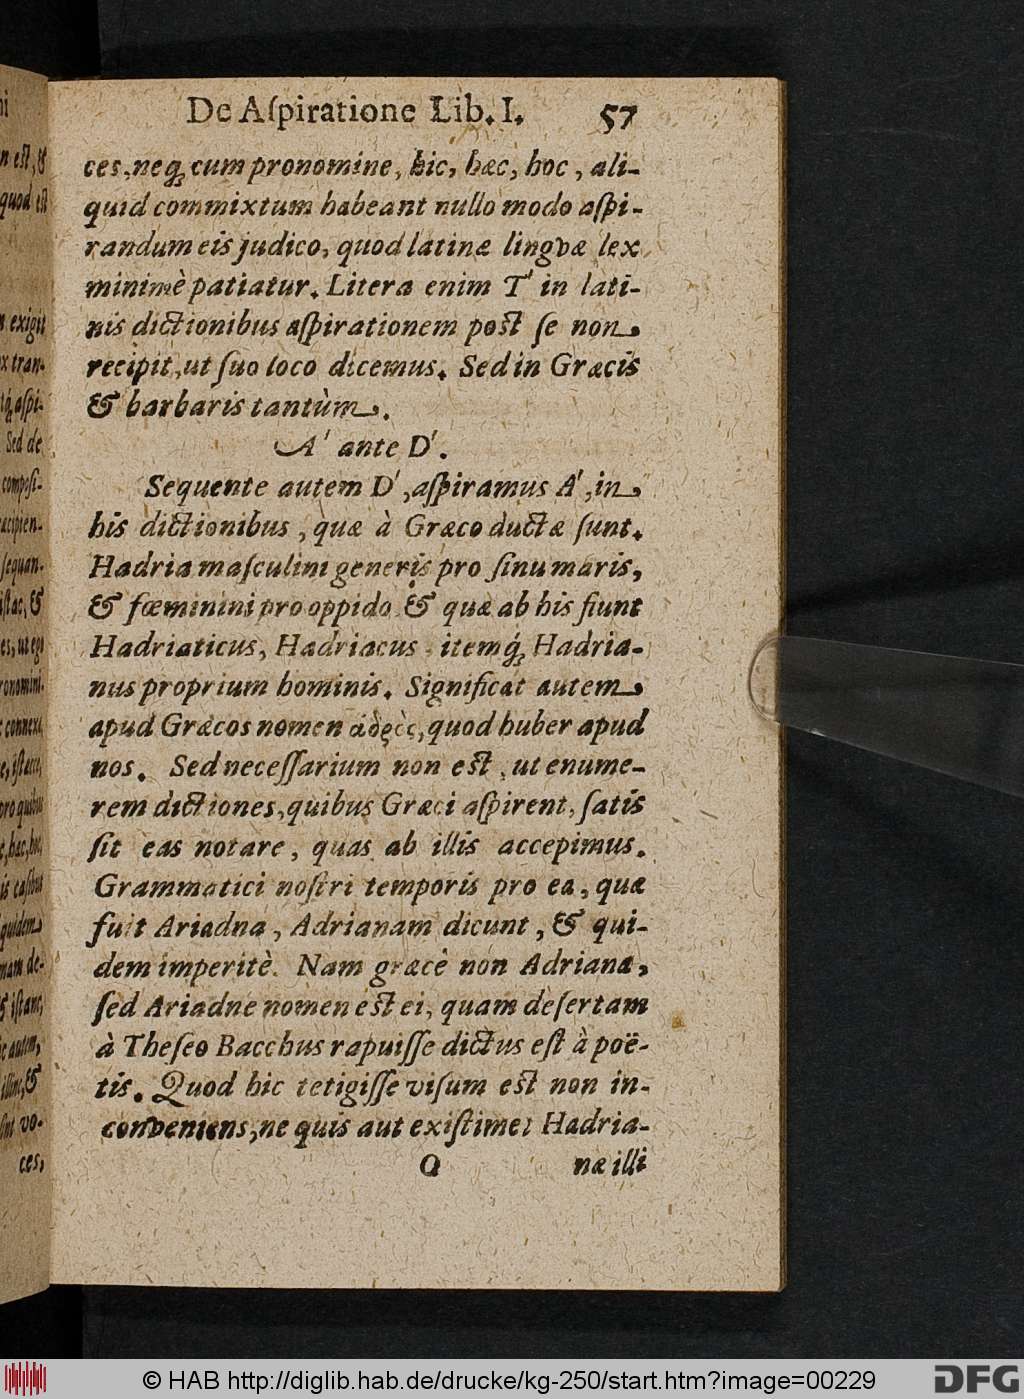 De Aſpiratione Lib. I. 57
ces, neq; cum pronomine, hic, hæc, hoc, ali-
quid commixtum habeant nullo modo aſpi-
randum eis judico, quod latinæ lingvæ lex
minimè patiatur. Litera enim T' in lati-
nis dictionibus aſpirationem poſt ſe non
recipit, ut ſuo loco dicemus. Sed in Græcis
& barbaris tantùm.
A' ante D'.
Sequente autem D', aſpiramus A', in
his dictionibus, quæ à Græco ductæ ſunt.
Hadria maſculini generis pro ſinu maris,
& fœminini pro oppido & quæ ab his fiunt
Hadriaticus, Hadriacus itemq́; Hadria-
nus proprium hominis. Significat autem
apud Græcos nomen quod huber apud
nos. Sed neceſſarium non eſt, ut enume-
rem dictiones, quibus Græci aſpirent, ſatis
ſit eas notare, quas ab illis accepimus.
Grammatici noſtri temporis pro ea, quæ
fuit Ariadna, Adrianam dicunt, & qui-
dem imperitè. Nam græcè non Adriana,
ſed Ariadne nomen eſt ei, quam deſertam
à Theſeo Bacchus rapuiſſe dictus eſt à poë-
tis. Quod hic tetigiſſe viſum eſt non in-
conveniens, ne quis aut exiſtimet Hadria-
O næ illi
© HAB http://diglib.hab.de/drucke/kg-250/start.htm?image=00229
DFG